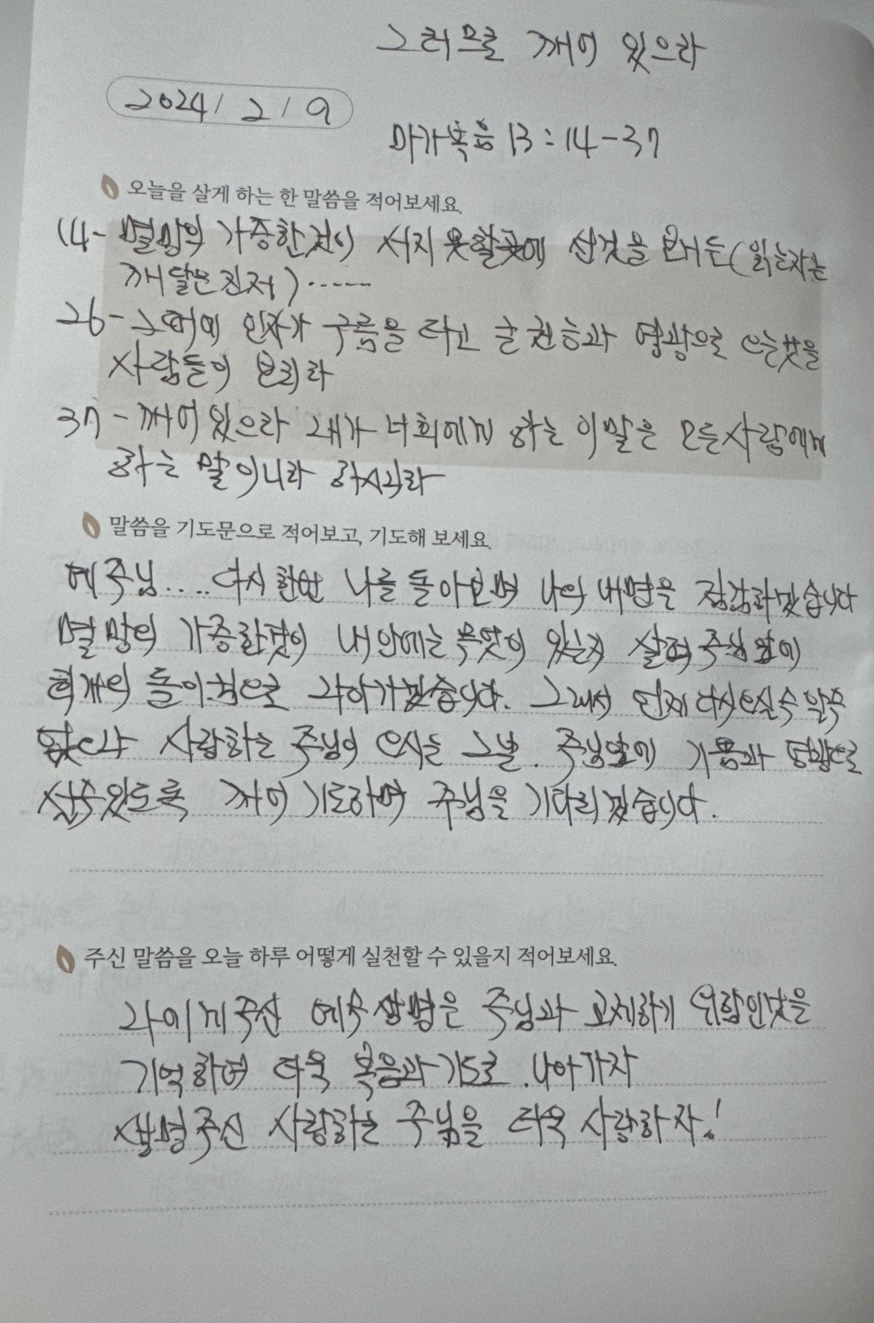 그러므로 깨어 있으라
2024/ 2 / 9
마가복음 13:14-37
오늘을 살게 하는 한 말씀을 적어보세요.
14- 멸망의 가증한 것이 서지 못할 곳에 선것을 보거든(읽는자는
깨달은진저)......
26- 그때에 인자가 구름을 타고 큰 권능과 영광으로 오는것을
사람들이 보리라
37- 깨어 있으라 내가 너희에게 하는 이 말은 모든사람에게
하는 말이니라 하시니라
말씀을 기도문으로 적어보고, 기도해 보세요.
다시 한번 나를 돌아보며 나의 내면을 점검하겠습니다
멸망의 가증한것이 내안에는 무엇이 있는지 살펴 주님 앞에
회개의 돌이킴으로 나아가겠습니다. 그래서 언제 다시오실 주
사랑하는 주님이 오시는 그날. 주님앞에 기쁨과 평강으로
설수있도록 깨어 기도하며 주님을 기다리겠습니다.
주신 말씀을 오늘 하루 어떻게 실천할 수 있을지 적어보세요.
나에게 주신 예수생명은 주님과 교제하기 위함인것을
기억하며 더욱 복음과 기도로 나아가자
생명주신 사랑하는 주님을 더욱 사랑하자!